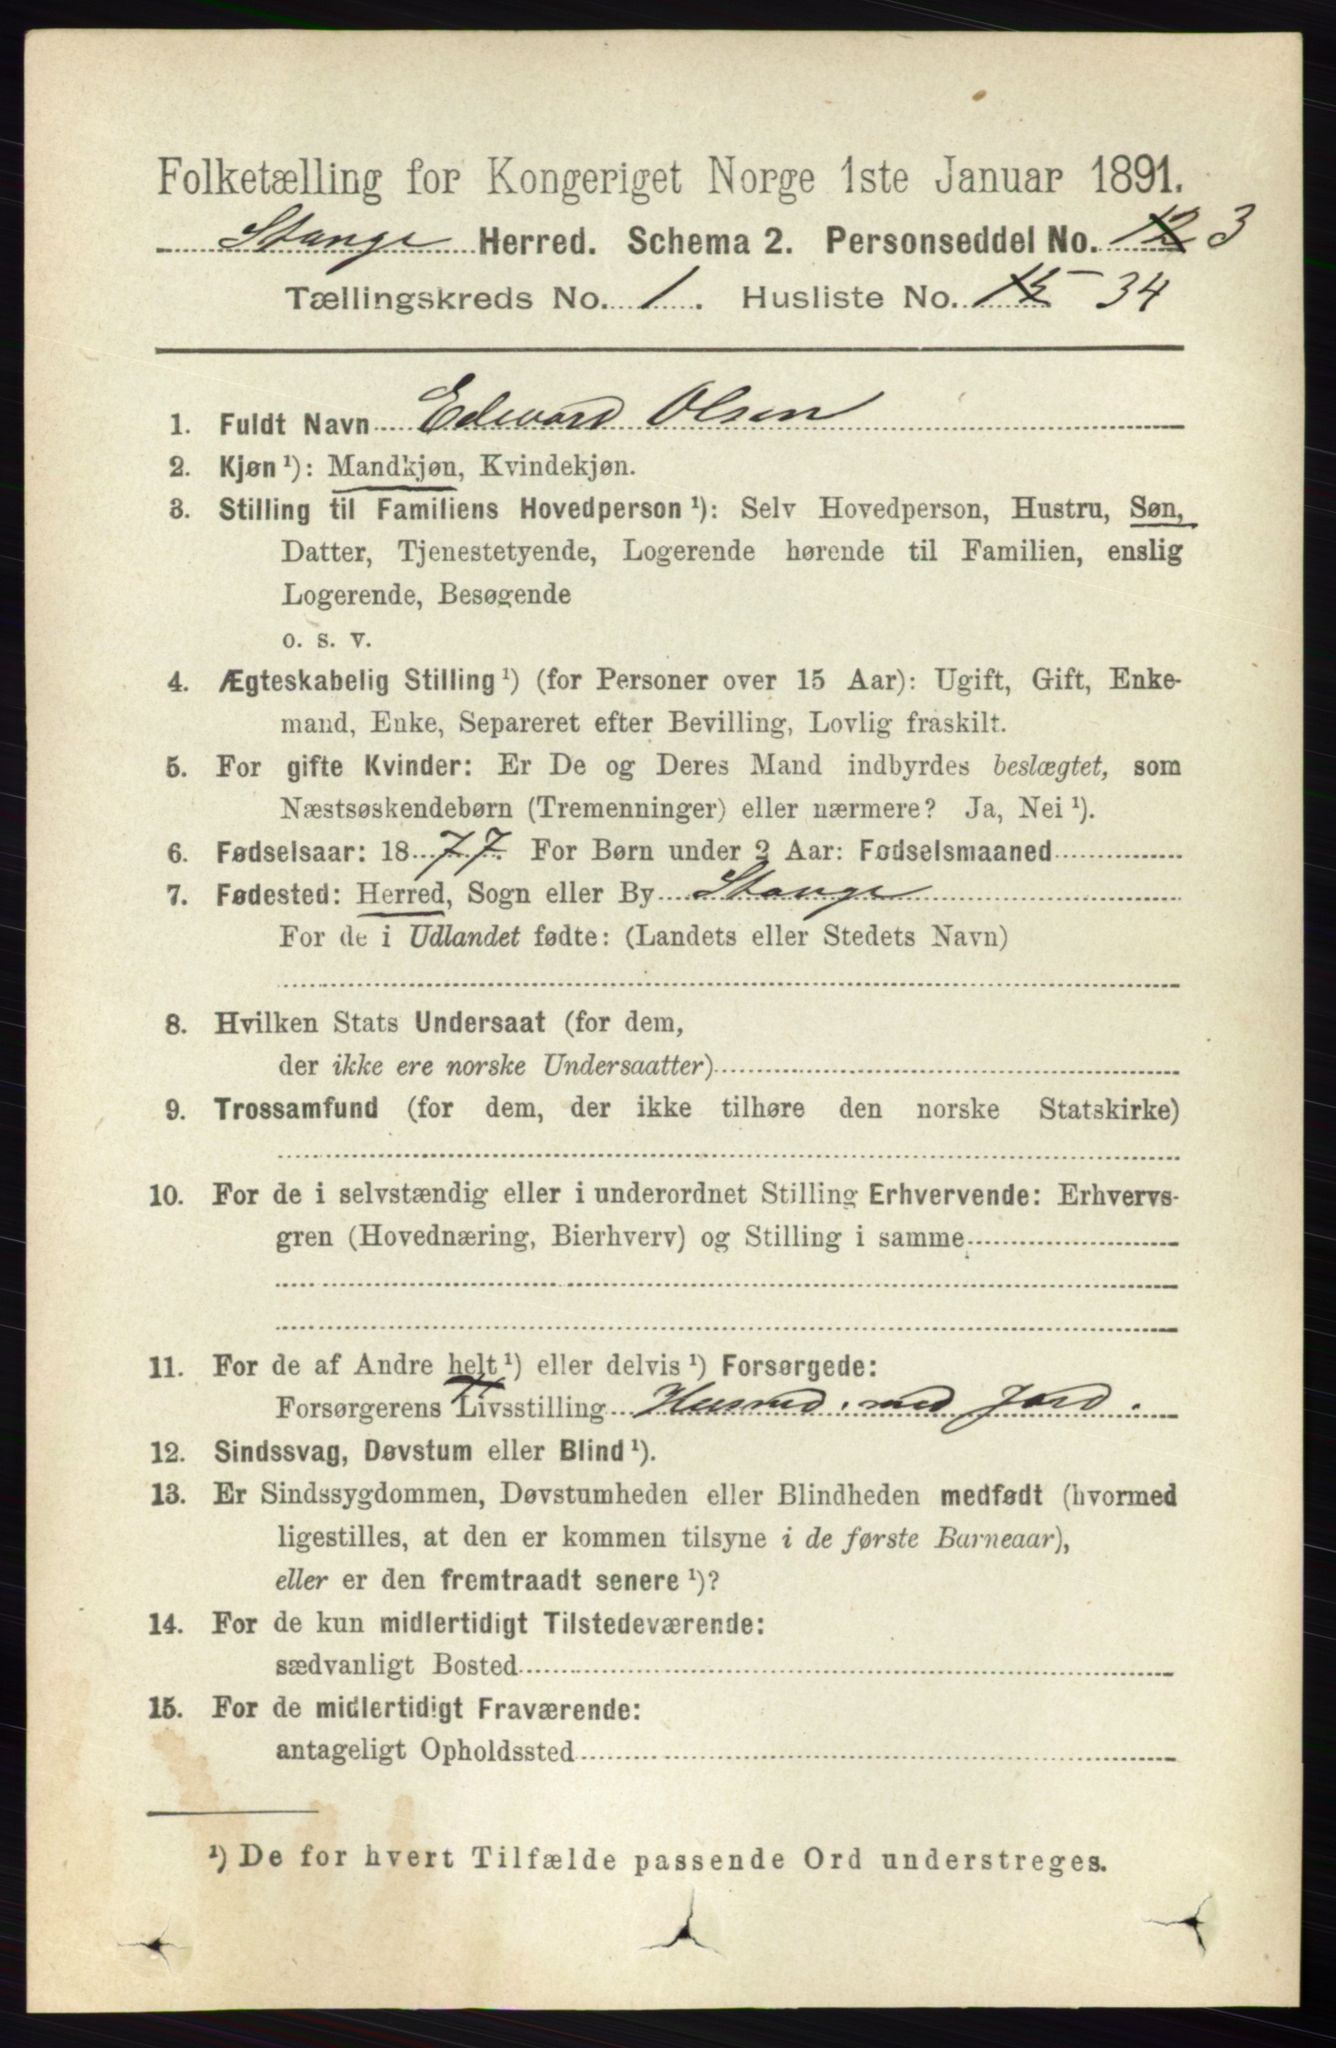 Folketælling for Kongeriget Norge 1ste Januar 1891.
Stange Herred. Schema 2. Personseddel No. 12 3
Tællingskreds No. 1. Husliste No. 15 34
1. Fuldt Navn Edvard Olsen
2. Kjøn ¹): Mandkjøn, Kvindekjøn.
3. Stilling til Familiens Hovedperson ¹): Selv Hovedperson, Hustru, Søn,
Datter, Tjenestetyende, Logerende hørende til Familien, enslig
Logerende, Besøgende
o. s. v.
4. Ægteskabelig Stilling ¹) (for Personer over 15 Aar): Ugift, Gift, Enke-
mand, Enke, Separeret efter Bevilling, Lovlig fraskilt.
5. For gifte Kvinder: Er De og Deres Mand indbyrdes beslægtet, som
Næstsøskendebørn (Tremenninger) eller nærmere? Ja, Nei ¹).
6. Fødselsaar: 1877. For Børn under 2 Aar: Fødselsmaaned
7. Fødested: Herred, Sogn eller By Stange
For de i Udlandet fødte: (Landets eller Stedets Navn)
8. Hvilken Stats Undersaat (for dem,
der ikke ere norske Undersaatter)
9. Trossamfund (for dem, der ikke tilhøre den norske Statskirke)
10. For de i selvstændig eller i underordnet Stilling Erhvervende: Erhvervs-
gren (Hovednæring, Bierhverv) og Stilling i samme
11. For de af Andre helt ¹) eller delvis ¹) Forsørgede:
Forsørgerens Livsstilling Husmd. med Jord.
12. Sindssvag, Døvstum eller Blind ¹).
13. Er Sindssygdommen, Døvstumheden eller Blindheden medfødt (hvormed
ligestilles, at den er kommen tilsyne i de første Barneaar),
eller er den fremtraadt senere ¹)?
14. For de kun midlertidigt Tilstedeværende:
sædvanligt Bosted
15. For de midlertidigt Fraværende:
antageligt Opholdssted
¹) De for hvert Tilfælde passende Ord understreges.